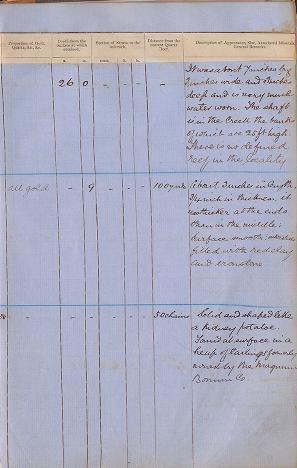 Proportion of Gold, Quartz, &c., &c.
Depth from the Surface at which obtained.
Section of Strata to the bedrock.
Distance from the nearest Quartz Reef.
Description of Appearance, Size, Associated Minerals, General Remarks.
26 0 - - - -
It was about 7 inches by
inches wide and inches
deep and is very much
water worn. The shaft
is in the Creek the banks
of which are 25 ft high.
There is no defined
reef in the locality
all gold - 9 - - - 100 yards
About inches in length
inch in thickness, it
is thicker at the ends
than in the middle;
surface smooth;
filled with red clay
and ironstone
- - - - - 50 chains
Solid and shaped like
a kidney potatoe.
Found at surface in a
heap of tailings formerly
owned by the Magnum
Bonum Co.